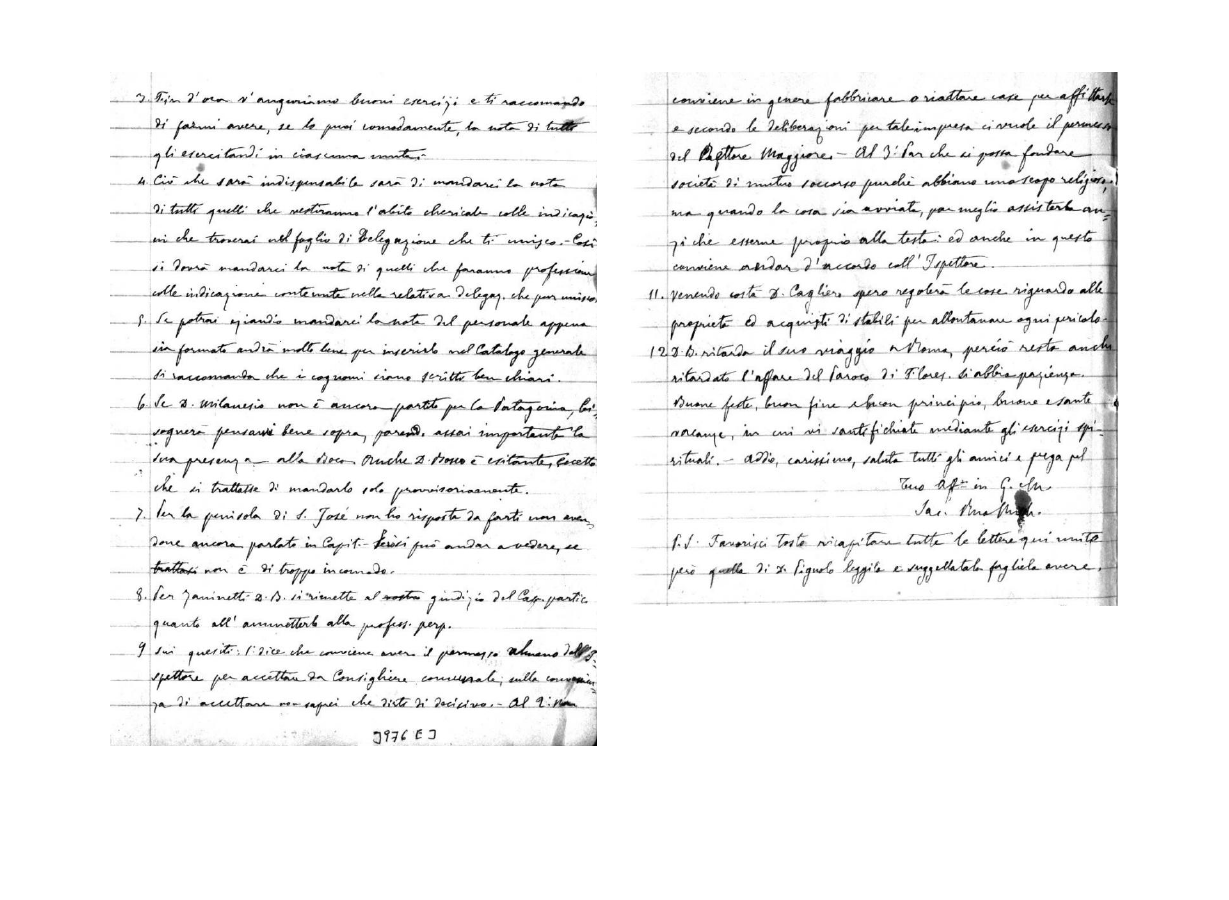 3. Fin d'ora v'auguriamo buoni esercizi e ti raccomando
di farmi avere, se lo puoi comodamente, la nota di tutti
gli esercitandi in ciascuna muta.
4. Ciò che sarà indispensabile sarà di mandarci la nota
di tutti quelli che vestiranno l'abito chericale colle indicazio=
ni che troverai nel foglio di Delegazione che ti unisco. - Così
si dovrà mandarci la nota di quelli che faranno professione
colle indicazioni contenute nella relativa delegaz. che pur unisco.
5. Se potrai eziandio mandarci la nota del personale appena
sia formato andrà molto bene per inserirlo nel Catalogo generale
Si raccomanda che i cognomi siano scritti ben chiari.
6. Se D. Milanesio non è ancora partito per la Patagonia, bi=
sognerà pensarvi bene sopra, parendo assai importante la
sua presenza alla Boca. Anche D. Bosco è esitante, eccetto
che si trattasse di mandarlo solo provvisoriamente.
7. Per la penisola di S. José non ho risposta da farti non aven=
done ancora parlato in Capit. - si può andar a vedere, se
trattasi non è di troppo incomodo.
8. Per Zaninetti D. B. si rimette al vostro giudizio del Cap. partic.
quanto all'ammetterlo alla profess. perp.
9 Sui quesiti: 1: dice che conviene avere il permesso almeno dell'I=
spettore per accettare da Consigliere comunale; sulla convenien=
za di accettare non saprei che dirti di decisivo. - Al 2: non
[976 E]
conviene in genere fabbricare o riattare case per affittarle
e secondo le deliberazioni per tale impresa ci vuole il permesso
del Rettore Maggiore. - Al 3: Par che si possa fondare
società di mutuo soccorso purchè abbiano uno scopo religioso,
ma quando la cosa sia avviata, par meglio assisterla an=
zi che esserne proprio alla testa: ed anche in questo
conviene andar d'accordo coll'Ispettore.
11. Venendo costà D. Cagliero spero regolerà le cose riguardo alle
proprietà ed acquisti di stabili per allontanare ogni pericolo.
12 D. B. ritarda il suo viaggio a Roma, perciò resta anche
ritardato l'affare del Paroco di Flores. Si abbia pazienza.
Buone feste, buon fine e buon principio, buone e sante
vacanze, in cui vi santifichiate mediante gli esercizi spi=
rituali. - Addio, carissimo, saluta tutti gli amici e prega pel
Tuo Aff.mo in G. e M.
Sac. Rua Mich.
P.S. Favorisci tosto ricapitare tutte le lettere qui unite
però quella di D. Pignolo leggila e suggellatala fagliela avere.